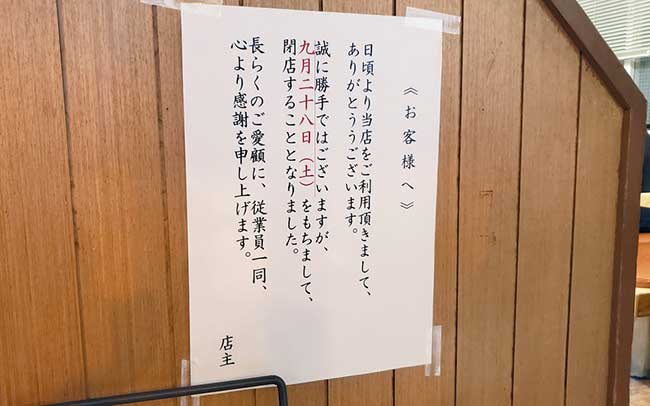 《お客様へ》
日頃より当店をご利用頂きまして、
ありがとううございます。
誠に勝手ではございますが、
九月二十八日（土）をもちまして、
閉店することとなりました。
長らくのご愛顧に、従業員一同、
心より感謝を申し上げます。
店主